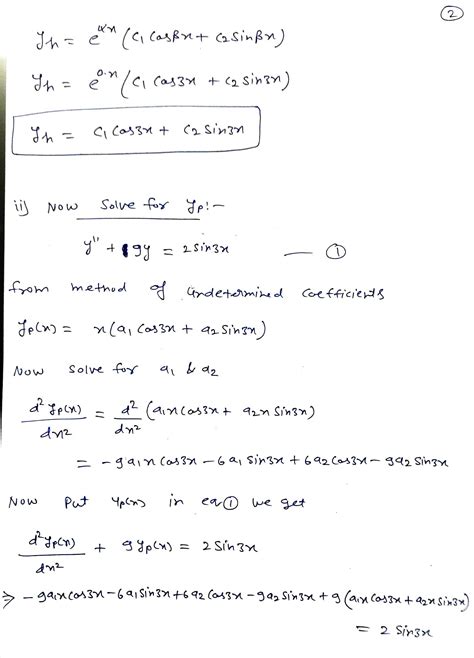 ②
y_h = e^{αx} (c₁ cosβx + c₂ sinβx)
y_h = e^{0·x} (c₁ cos3x + c₂ sin3x)
y_h = c₁ cos3x + c₂ sin3x
ii) Now Solve for y_p :-
y'' + 9y = 2 sin3x — ①
from method of undetermined coefficients
y_p(x) = x(a₁ cos3x + a₂ sin3x)
Now solve for a₁ & a₂
d² y_p(x)/dx² = d²/dx² (a₁x cos3x + a₂x sin3x)
= -9a₁x cos3x - 6a₁ sin3x + 6a₂ cos3x - 9a₂ sin3x
Now Put y_p(x) in eq ① we get
d² y_p(x)/dx² + 9 y_p(x) = 2 sin3x
⇒ -9a₁x cos3x - 6a₁ sin3x + 6a₂ cos3x - 9a₂ sin3x + 9 (a₁x cos3x + a₂x sin3x)
= 2 sin3x